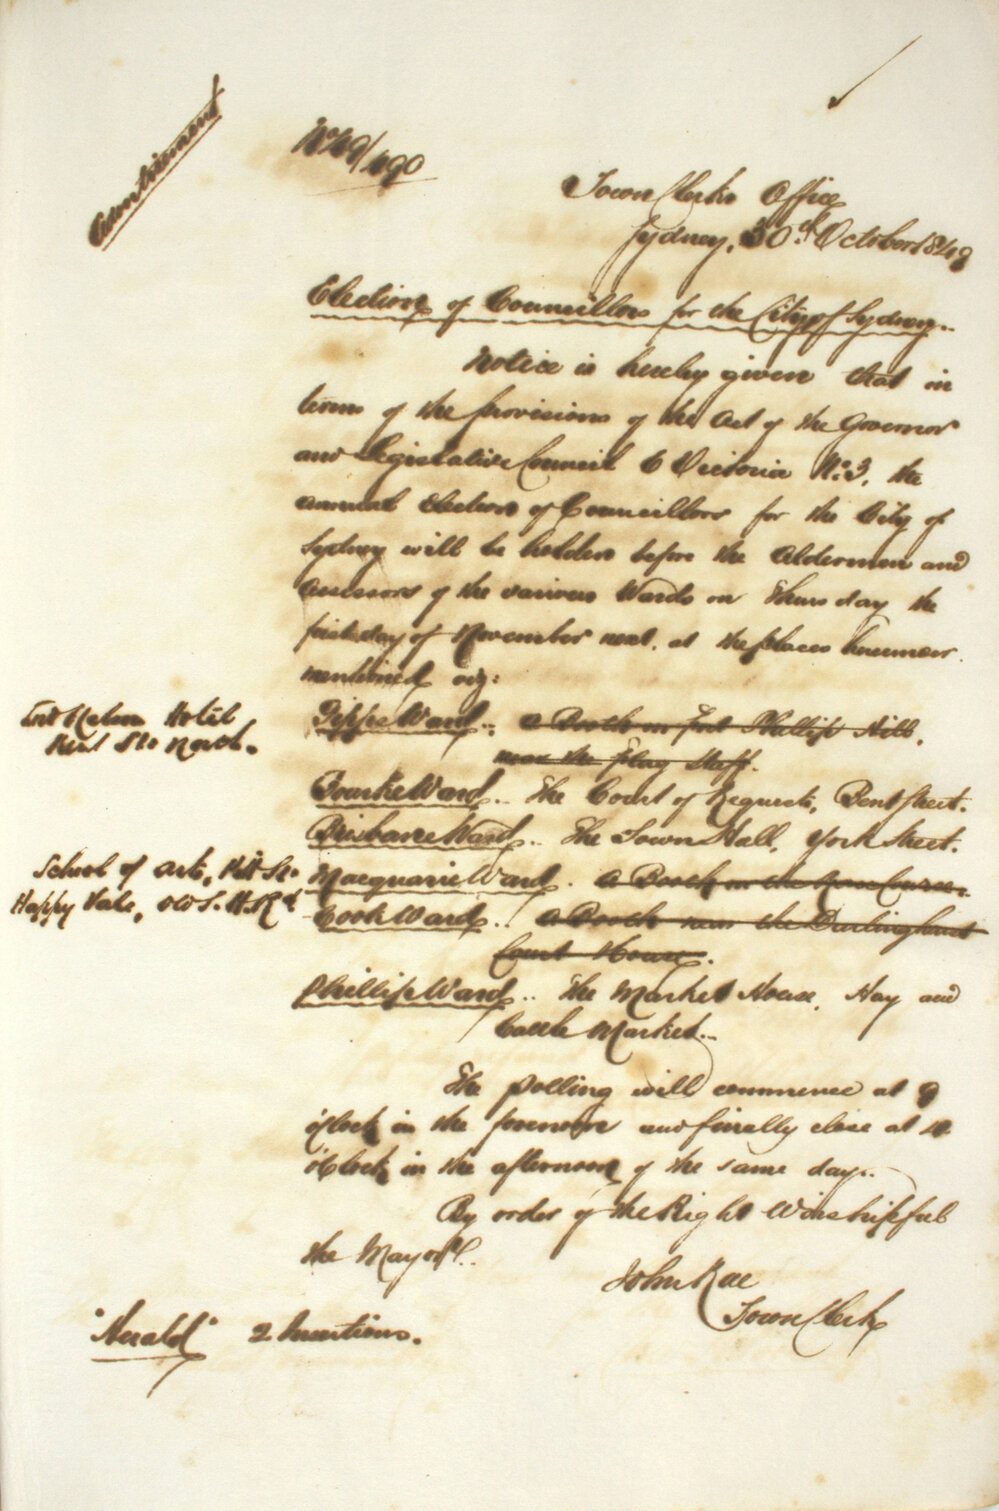 Advertisement
No 49/490
Town Clerks Office
Sydney, 30th October 1849
Election of Councillors for the City of Sydney..
Notice is hereby given that in
terms of the provisions of the Act of the Governor
and Legislative Council 6 Victoria No. 3, the
annual Election of Councillors for the City of
Sydney will be holden before the Aldermen and
Assessors of the various Wards on Thursday the
first day of November next, at the places hereunder
mentioned viz:
Lord Nelson Hotel
Kent St. North.
Gipps Ward.. a Booth on Fort Phillip Hill,
near the Flag Staff.
Bourke Ward.. The Court of Requests, Bent Street.
Brisbane Ward.. The Town Hall, York Street.
School of Arts, Pitt St.
Macquarie Ward. a Booth on the Race Course.
Happy Vale, Old S. H. Rd
Cook Ward.. a Booth near the Darlinghurst
Court House.
Phillip Ward.. The Market House, Hay and
Cattle Market..
The polling will commence at 9
o'Clock in the forenoon and finally close at 4
o'Clock in the afternoon of the same day..
By order of the Right Worshipful
the Mayor..
John Rae
Town Clerk
"Herald" 2 Insertions.